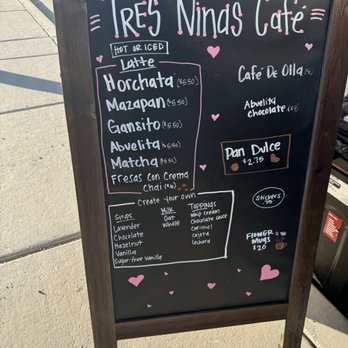 TRES Ninas Café
HOT OR ICED
Latte
Horchata ($5.50)
Mazapan ($5.50)
Gansito ($5.50)
Abuelita ($5.50)
Matcha ($5.50)
Fresas con Crema
Chai
Café De Olla
Abuelita
Chocolate
Pan Dulce
$2.75
Create Your Own
Syrups
Lavender
Chocolate
Hazelnut
Vanilla
Sugar-free vanilla
Milk
Oat
Whole
Toppings
Whip cream
Chocolate sauce
Caramel
Cajeta
lechera
Stickers
Flower
Mugs
$20